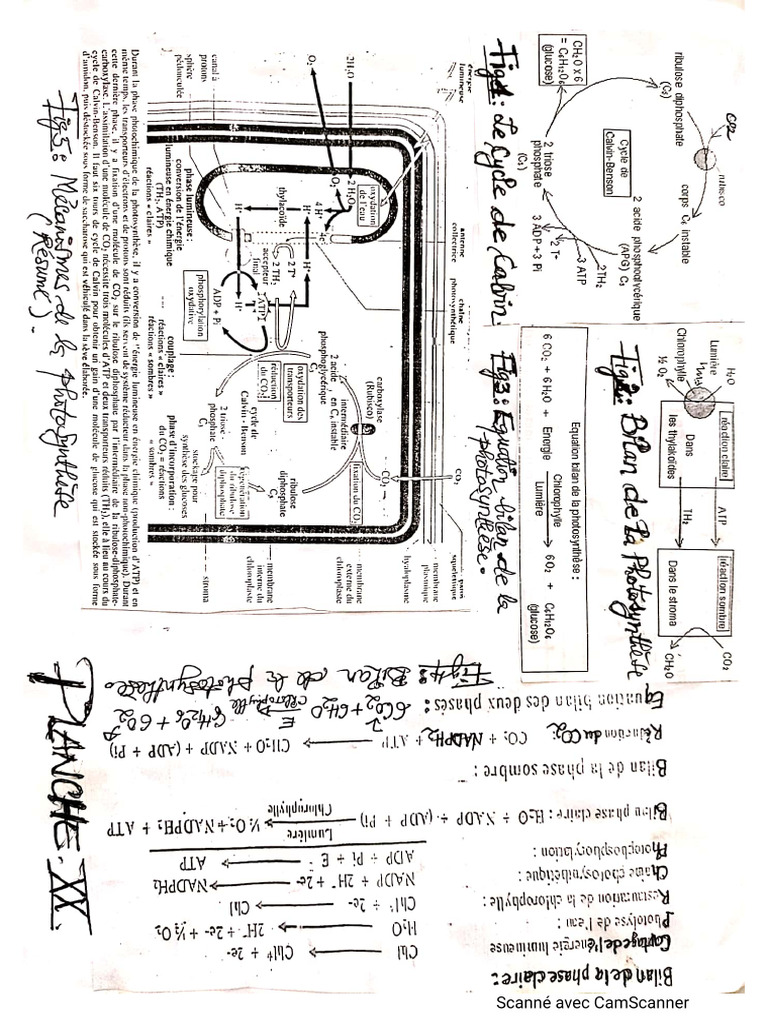 CO2
rubisco
ribulose diphosphate
(C₅)
corps C₆ instable
Cycle de
Calvin-Benson
2 acide phosphoglycérique
(APG) C₃
2TH₂
3 ATP
2 T
3 ADP + 3 Pi
2 triose
phosphate
(C₃)
CH₂O x 6
= C₆H₁₂O₆
(glucose)
Fig1: Le Cycle de Calvin.
H₂O
Lumière
Chlorophylle
½ O₂
réaction claire
Dans
les thylakoïdes
ATP
TH₂
réaction sombre
Dans le stroma
CO₂
CH₂O
Fig2: Bilan de la Photosynthèse
Equation bilan de la photosynthèse :
6 CO₂ + 6 H₂O + Energie
Chlorophylle
Lumière
6O₂ + C₆H₁₂O₆
(glucose)
Fig3: Equation bilan de la
photosynthèse.
énergie
lumineuse
antenne
collectrice
chaîne
photosynthétique
2H₂O
O₂
oxydation
de l'eau
2 H₂O
O₂
4 H⁺
4e⁻
thylacoïde
H⁺
H⁺
2 T⁺
2 TH₂
accepteur
final
ATP
H⁺
H⁺
ADP + Pi
phosphorylation
oxydative
canal à
protons
sphère
pédonculée
phase lumineuse :
conversion de l'énergie
lumineuse en énergie chimique
(TH₂, ATP)
réactions « claires »
couplage :
réactions « claires »
réactions « sombres »
phase d'incorporation :
du CO₂ = réactions
« sombres »
carboxylase
(Rubisco)
CO₂
CO₂
fixation du CO₂
intermédiaire
en C₆ instable
2 acide
phosphoglycérique
C₃
oxydation des
transporteurs
réduction
du CO₂
cycle de
Calvin - Benson
ribulose
diphosphate
C₅
régénération
du ribulose
diphosphate
2 triose
phosphate
C₃
stockage pour
synthèse des glucoses
paroi
squelettique
membrane
plasmique
hyaloplasme
membrane
externe du
chloroplaste
membrane
interne du
chloroplaste
stroma
Durant la phase photochimique de la photosynthèse, il y a conversion de l'énergie lumineuse en énergie chimique (production d'ATP) et en
même temps, les transporteurs d'électrons et de protons sont réduits (ils servent de système réducteur dans la phase non-photochimique). Durant
cette dernière phase, il y a fixation d'une molécule de CO₂ sur le ribulose diphosphate par l'intermédiaire de la ribulose-diphosphate-
carboxylase. L'assimilation d'une molécule de CO₂ nécessite trois molécules d'ATP et deux transporteurs réduits (TH₂), elle a lieu au cours du
cycle de Calvin-Benson. Il faut six tours de cycle de Calvin pour obtenir un gain d'une molécule de glucose qui est stockée sous forme
d'amidon, puis déstockée sous forme de saccharose qui est véhiculé dans la sève élaborée.
Fig5: Mécanismes de la photosynthèse
(Résumé).
Bilan de la phase claire :
Captage de l'énergie lumineuse
Chl → Chl⁺ + 2e⁻
Photolyse de l'eau :
H₂O → 2H⁺ + 2e⁻ + ½ O₂
Restauration de la chlorophylle :
Chl⁺ + 2e⁻ → Chl
Chaîne photosynthétique :
NADP + 2H⁺ + 2e⁻ → NADPH₂
Photophosphorylation :
ADP + Pi + E → ATP
Bilan phase claire : H₂O + NADP + (ADP + Pi)
Lumière
Chlorophylle
½ O₂ + NADPH₂ + ATP
Bilan de la phase sombre :
Réduction du CO₂: CO₂ + NADPH₂ + ATP → CH₂O + NADP + (ADP + Pi)
Equation bilan des deux phases :
6CO₂ + 6H₂O E → Chlorophylle C₆H₁₂O₆ + 6O₂
Fig4: Bilan de la photosynthèse.
PLANCHE.XX.
Scanné avec CamScanner